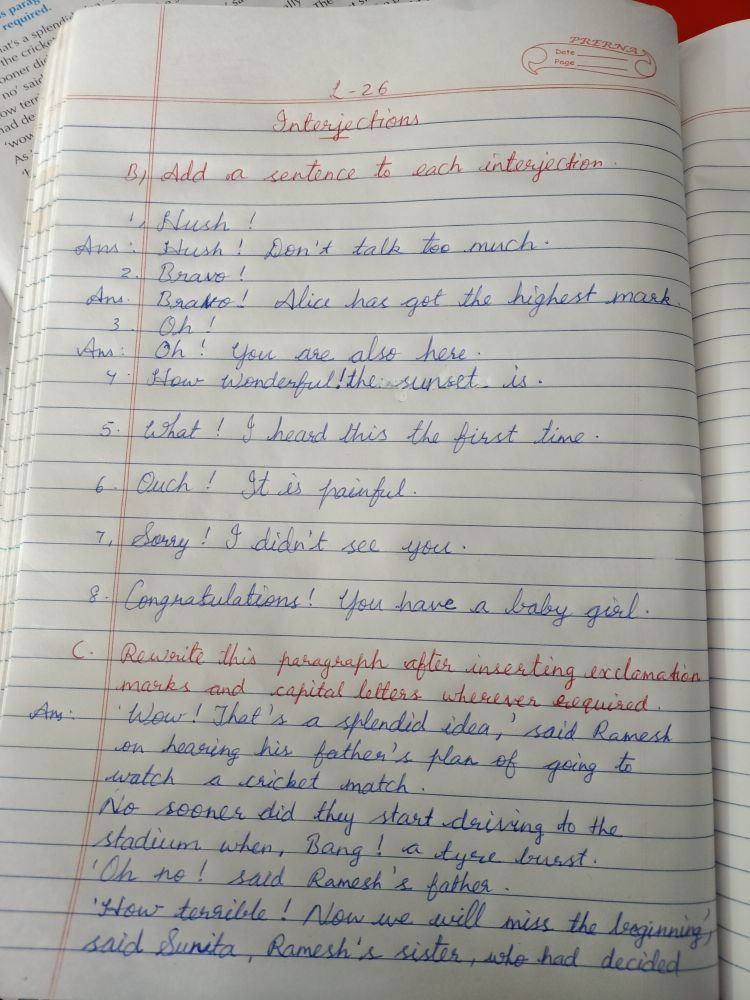 s parag
required.
at's a splendid
the cricke
ooner did
no' said
ow terri
had de
'wow
As
PRERNA
Date
Page
L-26
Interjections
B) Add a sentence to each interjection.
1, Hush !
Ans: Hush ! Don't talk too much.
2. Bravo !
Ans. Bravo! Alice has got the highest mark.
3. Oh !
Ans: Oh ! You are also here.
4. How wonderful! the sunset is.
5. What ! I heard this the first time.
6. Ouch ! It is painful.
7, Sorry ! I didn't see you.
8. Congratulations! You have a baby girl.
C. Rewrite this paragraph after inserting exclamation
marks and capital letters wherever required.
Ans: 'Wow! That's a splendid idea,' said Ramesh
on hearing his father's plan of going to
watch a cricket match.
No sooner did they start driving to the
stadium when, Bang! a tyre burst.
'Oh no! said Ramesh's father.
'How terrible! Now we will miss the beginning',
said Sunita, Ramesh's sister, who had decided